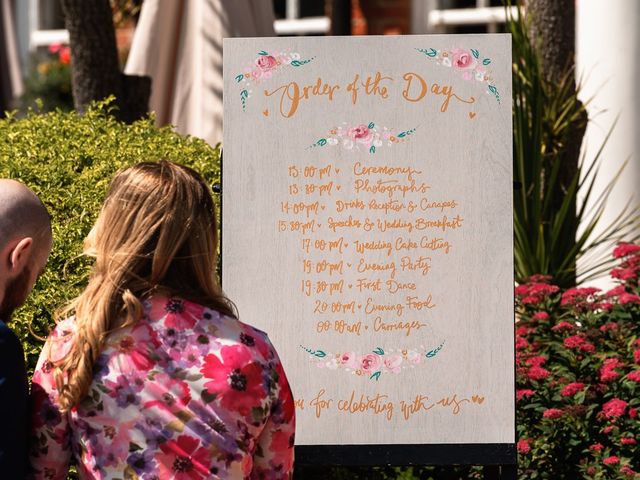 Order of the Day
13:00pm Ceremony
13:30pm Photographs
14:00pm Drinks Reception & Canapes
15:30pm Speeches & Wedding Breakfast
17:00pm Wedding Cake Cutting
19:00pm Evening Party
19:30pm First Dance
20:00pm Evening Food
00:00am Carriages
for celebrating with us